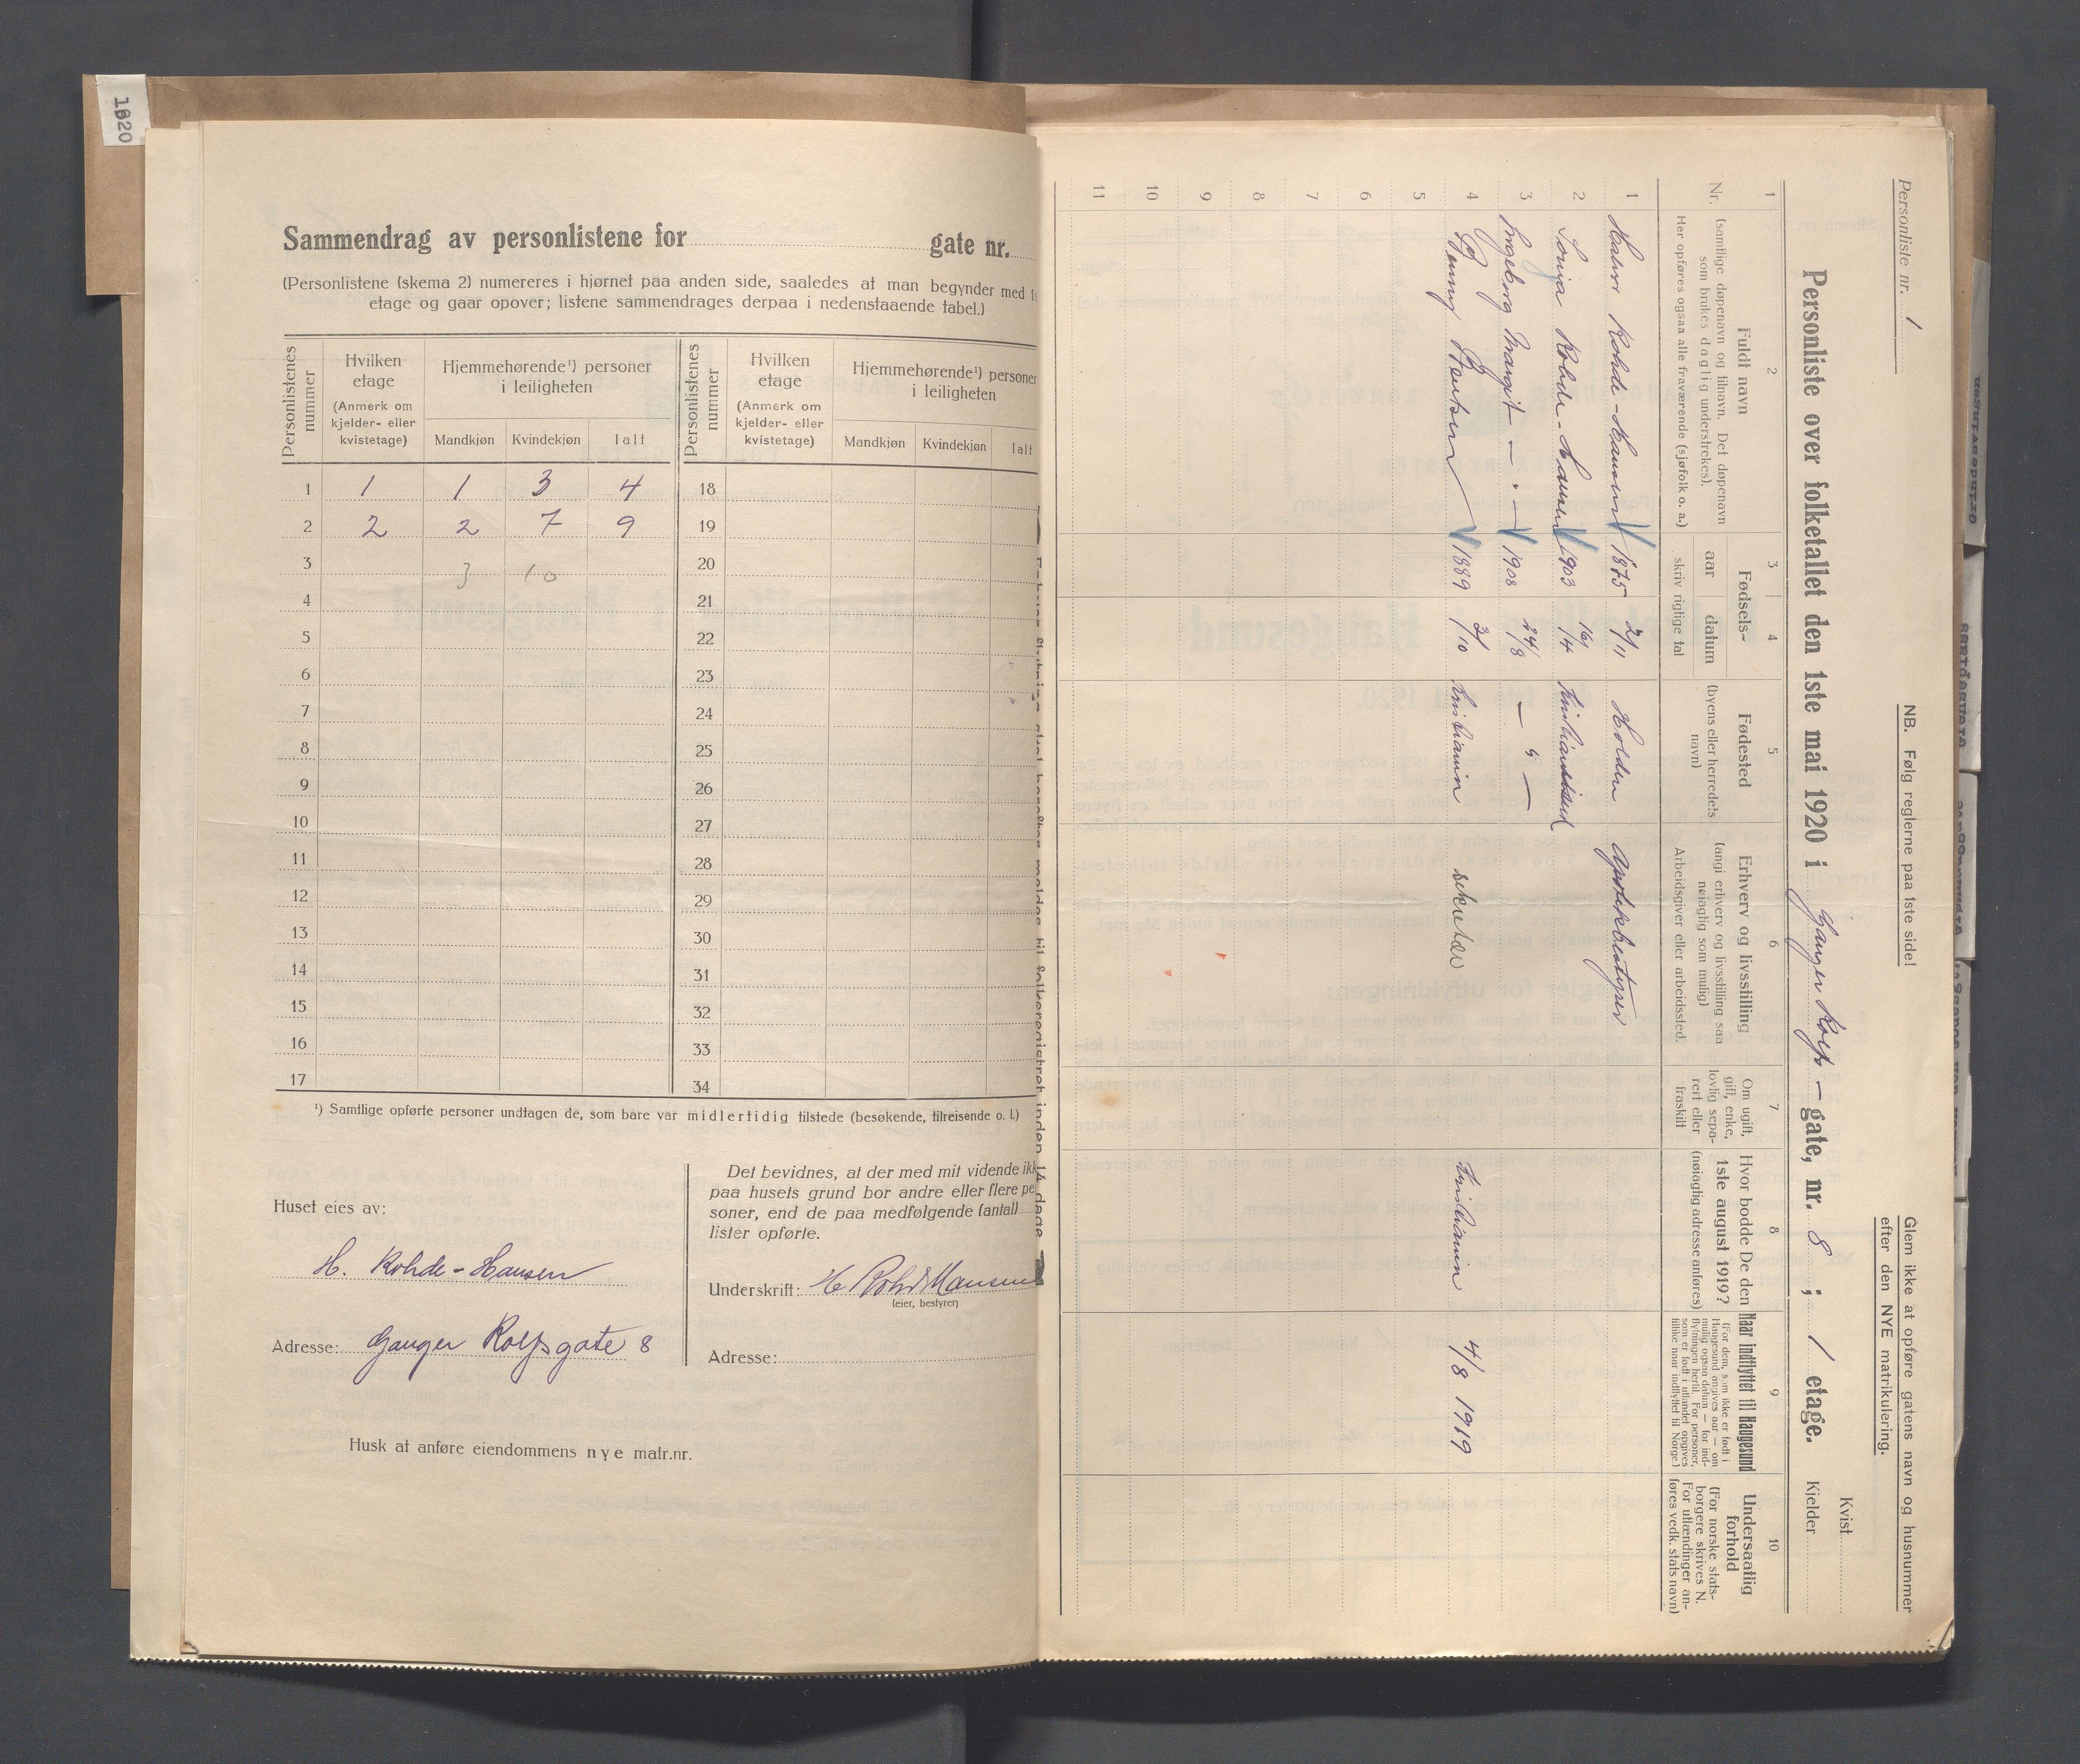 1920
Sammendrag av personlistene for gate nr.
(Personlistene (skema 2) numereres i hjørnet paa anden side, saaledes at man begynder med
etage og gaar opover; listene sammendrages derpaa i nedenstaaende tabel.)
Personlistenes nummer
Hvilken etage
(Anmerk om kjelder- eller kvistetage)
Hjemmehørende¹) personer i leiligheten
Mandkjøn Kvindekjøn Ialt
Personlistenes nummer
Hvilken etage
(Anmerk om kjelder- eller kvistetage)
Hjemmehørende¹) personer i leiligheten
Mandkjøn Kvindekjøn Ialt
1 1 1 3 4 18
2 2 2 7 9 19
3 3 10 20
4 21
5 22
6 23
7 24
8 25
9 26
10 27
11 28
12 29
13 30
14 31
15 32
16 33
17 34
¹) Samtlige opførte personer undtagen de, som bare var midlertidig tilstede (besøkende, tilreisende o. l.)
Huset eies av:
H. Rohde-Hansen
Adresse: Ganger Rolfsgate 8
Det bevidnes, at der med mit vidende
paa husets grund bor andre eller flere
soner, end de paa medfølgende (antal)
lister opførte.
Underskrift: H Rohde Hansen
(eier, bestyrer)
Adresse:
Husk at anføre eiendommens nye matr.nr.
Personliste nr. 1
NB. Følg reglerne paa 1ste side!
Glem ikke at opføre gatens navn og husnummer
efter den NYE matrikulering.
Personliste over folketallet den 1ste mai 1920 i Ganger Rolfs-gate, nr. 8; 1 etage.
Kvist
Kjelder
1 2 3 4 5 6 7 8 9 10
Nr.
Fuldt navn
(samtlige døpenavn og tilnavn. Det døpenavn
som brukes daglig understrekes).
Her opføres ogsaa alle fraværende (sjøfolk o. a.)
Fødsels-
aar datum
skriv rigtige tal
Fødested
(byens eller herredets
navn)
Erhverv og livsstilling
(angi erhverv og livsstilling saa
nøiagtig som mulig)
Arbeidsgiver eller arbeidssted.
Om ugift,
gift, enke,
lovlig sepa-
rert eller
fraskilt
Hvor bodde De den
1ste august 1919?
(nøiagtig adresse anføres)
Naar indflyttet til Haugesund
(For dem, som ikke er født i
Haugesund angives aar — om
mulig ogsaa datum — for ind-
flytningen hertil. For personer,
som er født i utlandet opgives
tillike naar indflyttet til Norge.)
Undersaatlig
forhold
(For norske stats-
borgere skrives N.
For utlændinger an-
føres vedk. stats navn)
1 Rohde-Hansen 1875 2/11 Holden Apotekbestyrer
2 Rohde-Hansen 1903 16/4 Kristiansund
3 Ingeborg Margit — " — 1908 24/8 — " —
4 Jenny Bentsen 1889 3/10 Kristiania sekretær Kristiania 4/8 1919
5
6
7
8
9
10
11